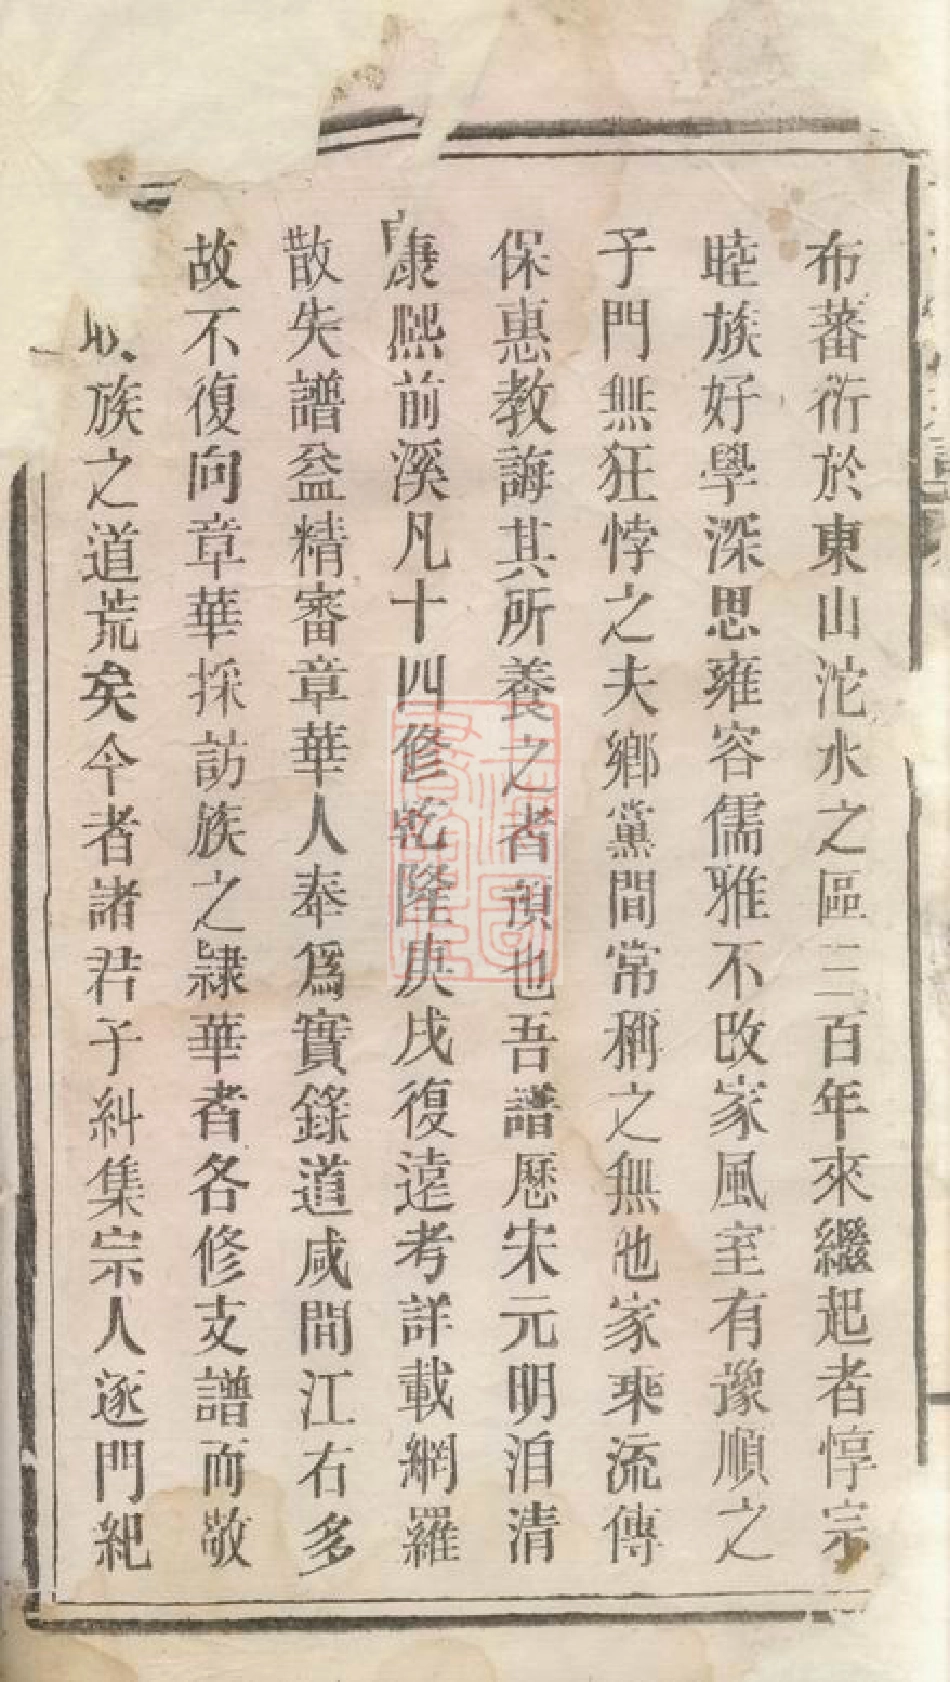 布蕃衍於東山沱水之區三百年來繼起者惇宗
睦族好學深思雍容儒雅不改家風室有豫順之
子門無狂悖之夫鄉黨間常稱之無他家乘流傳
保惠教誨其所養之者預也吾譜歷宋元明洎清
康熙前溪凡十四修乾隆庚戌復遠考詳載網羅
散失譜益精審章華人奉爲實錄道咸間江右多
故不復向章華採訪族之隷華者各修支譜而敬
族之道荒矣今者諸君子糾集宗人逐門紀